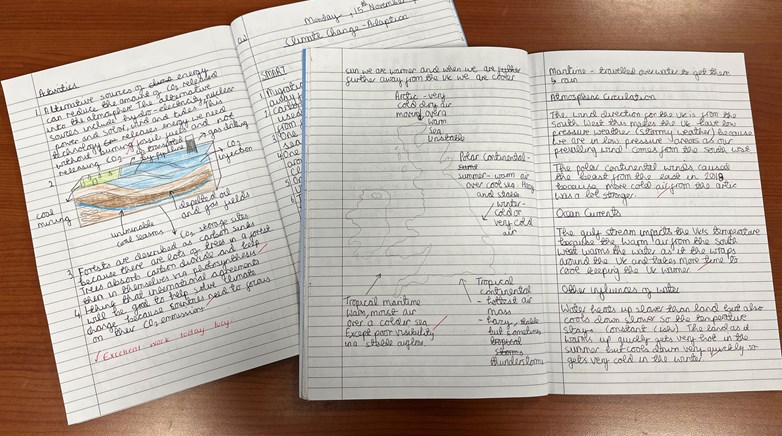 Activities
1. Alternative sources of energy
can reduce the amount of CO2 released
into the atmosphere. The alternative
sources include hydro-electricity, nuclear
power and solar, wind and tides. This
technology
without burning fossil fuels and not
releasing CO2
gas drilling
by pipe
CO2
injection
2.
coal
mining
depleted oil
and gas
unminable
coal seams
CO2 storage sites
3. Forests are described as carbon sinks
because there are lots of trees in a forest
Trees absorb carbon dioxide and help
them in themselves via photosynthesis
4. I think that international agreements
will be good to help solve climate
change because countries need to focus
on their CO2 emissions
✓ Excellent work today
Monday, 15th November
Climate Change - Adaption
SMART
1. Migration
away
2. Carbon
used
from
3. One
sea
4. One
sun we are warmer and when we are further
further away from the UK we are cooler
Arctic - very
cold dry air
moving over a
warm
sea
unstable
Polar continental -
summer - warm air
over cool sea. Hazy
and stable
winter -
cold or
very cold
air
Tropical maritime
Warm, moist air
over a colder sea
Except poor visibility
in a stable airflow
Tropical
continental
- hottest air
mass
- hazy, stable
but sometimes
tropical
storms
thunderstorms
Maritime - travelled over water to get there
↳ rain
Atmospheric Circulation
The wind direction for the UK is from the
South West this makes the UK have low
pressure weather (stormy weather) because
we are in low pressure areas as our
prevailing wind comes from the south west
The polar continental winds caused
the beast from the east in 2018
because more cold air from the artic
was a lot stronger.
Ocean Currents
The gulf stream impacts the UK's temperature
because the warm air from the south
west warms the water as it the wraps
around the UK and takes more time to
cool keeping the UK warmer.
Other influences of water
Water heats up slower than land but also
cools down slower so the temperature
stays constant (ish). The land as it
warms up quickly gets very hot in the
summer but cools down very quickly so
gets very cold in the winter.